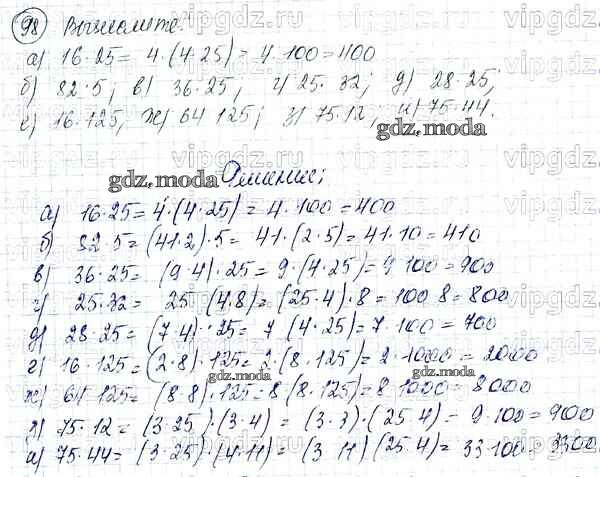 98 Вычислите:
а) 16·25 = 4·(4·25) = 4·100 = 400
б) 82·5; в) 36·25; г) 25·32; д) 28·25;
е) 16·125; ж) 64·125; з) 75·12; и) 75·44.
gdz.moda
Решение;
gdz.moda
а) 16·25 = 4·(4·25) = 4·100 = 400
б) 82·5 = (41·2)·5 = 41·(2·5) = 41·10 = 410
в) 36·25 = (9·4)·25 = 9·(4·25) = 9·100 = 900
г) 25·32 = 25·(4·8) = (25·4)·8 = 100·8 = 800
д) 28·25 = (7·4)·25 = 7·(4·25) = 7·100 = 700
г) 16·125 = (2·8)·125 = 2·(8·125) = 2·1000 = 2000
gdz.moda gdz.moda
ж) 64·125 = (8·8)·125 = 8·(8·125) = 8·1000 = 8000
з) 75·12 = (3·25)·(3·4) = (3·3)·(25·4) = 9·100 = 900
и) 75·44 = (3·25)·(4·11) = (3·11)·(25·4) = 33·100 = 3300